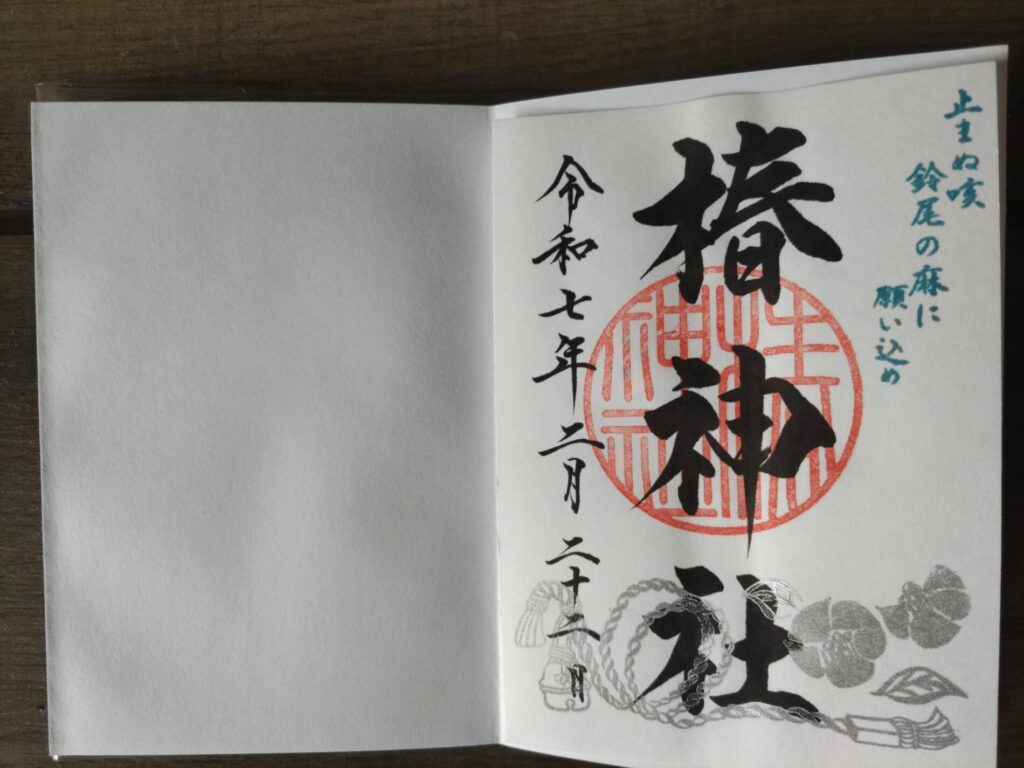 止まぬ咳
鈴尾の麻に
願い込め
椿神社
令和七年二月二十二日